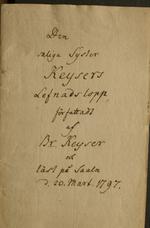 Den
saliga Syster
Keysers
Lefnads lopp,
författadt
af
Br. Keyser
och
läst på Saaln
d. 20. Mart. 1797.